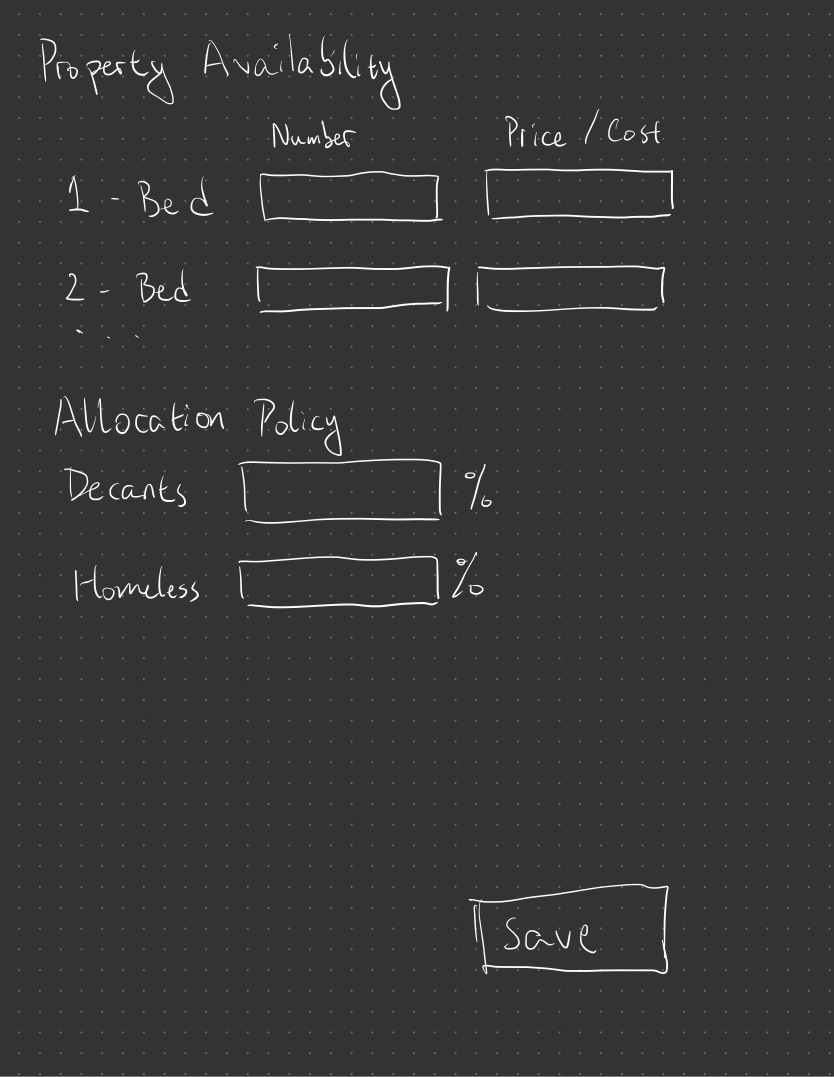 Property Availability
Number Price / Cost
1 - Bed
2 - Bed
. . .
Allocation Policy
Decants %
Homeless %
Save